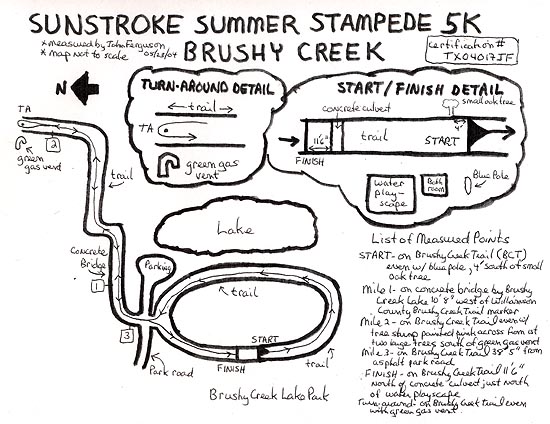 SUNSTROKE SUMMER STAMPEDE 5K
BRUSHY CREEK
*measured by John Ferguson
05/28/04
*map not to scale
certification #
TX04017JF
N
TURN-AROUND DETAIL
trail
TA
green gas
vent
START/FINISH DETAIL
concrete culvert
small oak tree
4'
11'6"
trail
START
FINISH
water
play-
scape
Bath
room
Blue Pole
TA
2
green
gas vent
trail
Concrete
Bridge
1
Parking
Lake
trail
3
START
FINISH
trail
Park road
Brushy Creek Lake Park
List of Measured Points
START- on Brushy Creek Trail (BCT)
even w/ blue pole, 4' south of small
oak tree
Mile 1- on concrete bridge by Brushy
Creek Lake 10'8" west of Williamson
County Brushy Creek Trail marker
Mile 2- on Brushy Creek Trail even w/
tree stump painted pink across from at
two large trees south of green gas vent
Mile 3- on Brushy Creek Trail 38'5" from
asphalt park road
FINISH- on Brushy Creek Trail 11'6"
North of concrete culvert just north
of water playscape
Turn-around- on Brushy Creek Trail even
with green gas vent